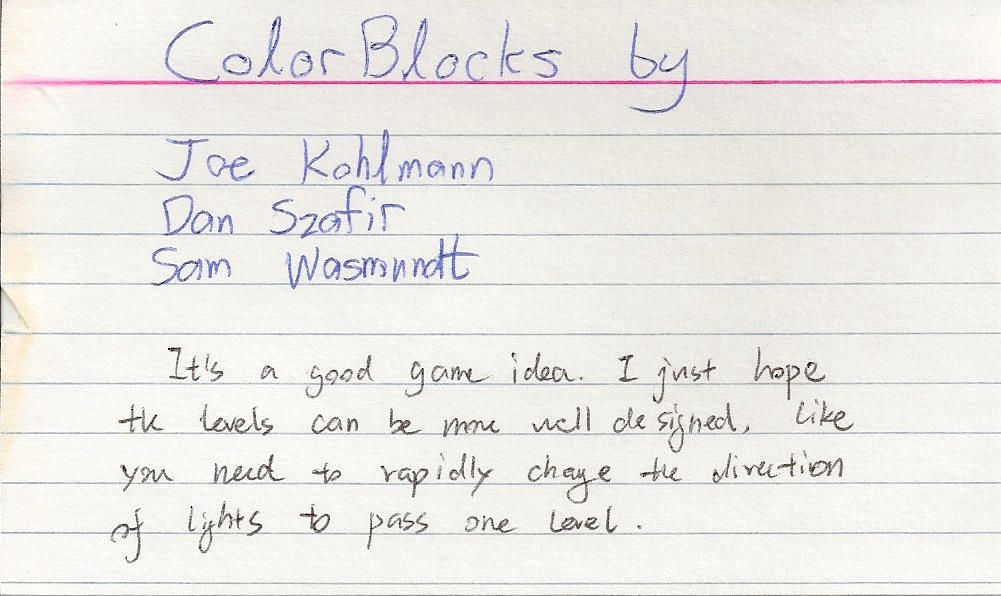 ColorBlocks by
Joe Kohlmann
Dan Szafir
Sam Wasmundt
It's a good game idea. I just hope
the levels can be more well designed, like
you need to rapidly change the direction
of lights to pass one level.